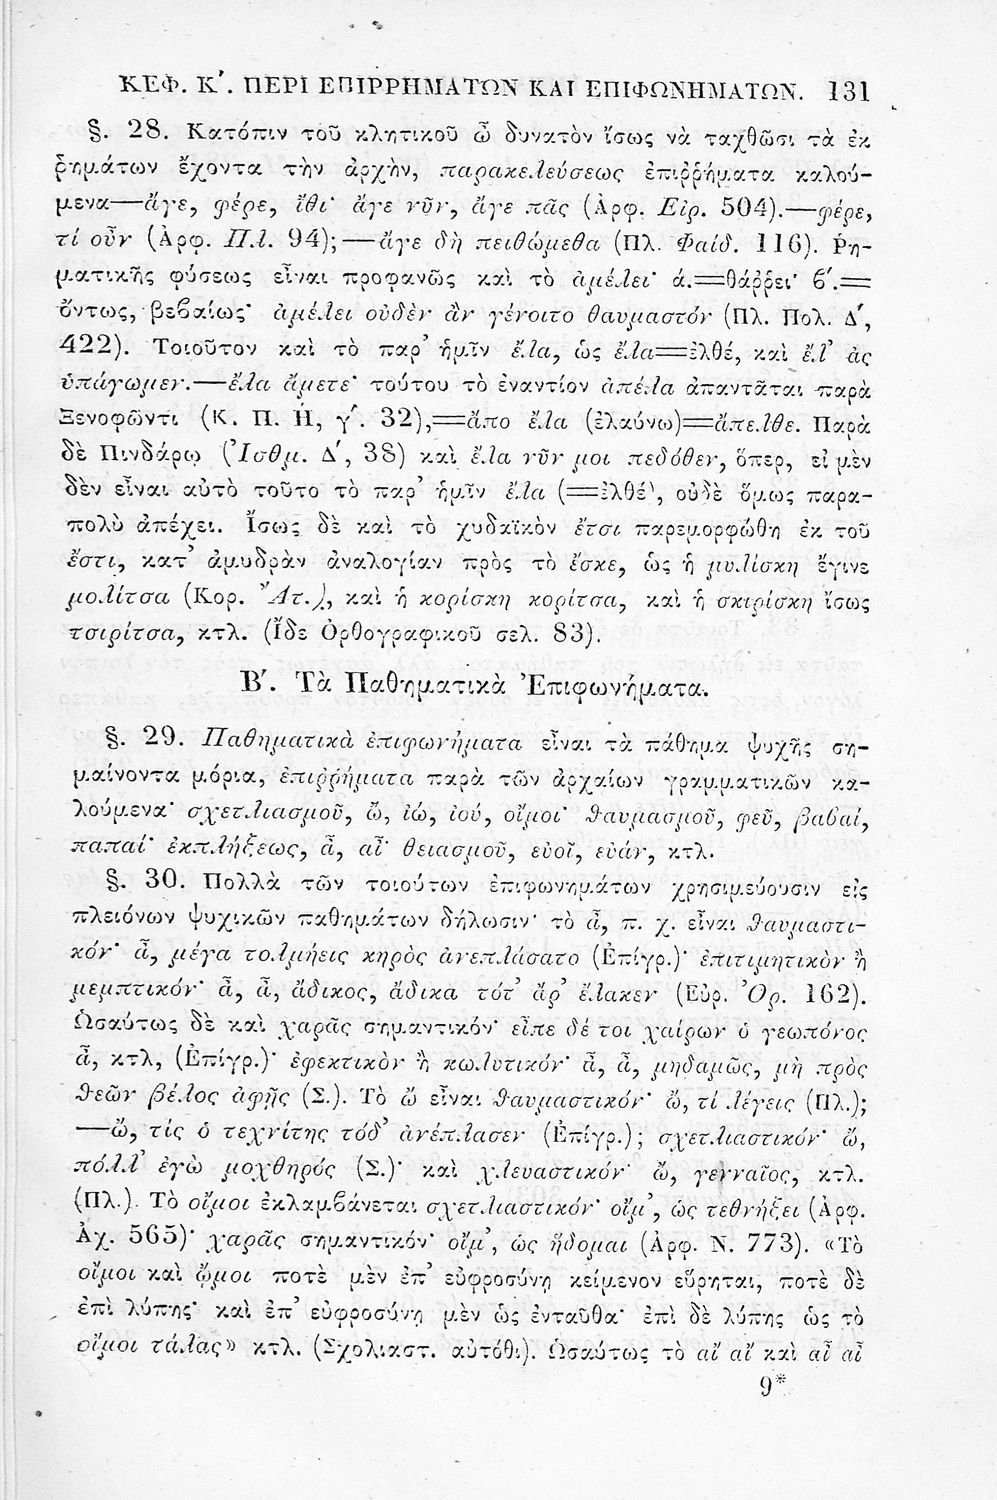 ΚΕΦ. Κ΄. ΠΕΡΙ ΕΠΙΡΡΗΜΑΤΩΝ ΚΑΙ ΕΠΙΦΩΝΗΜΑΤΩΝ. 131
§. 28. Κατόπιν τοῦ κλητικοῦ ὦ δυνατὸν ἴσως νὰ ταχθῶσι τὰ ἐκ
ῥημάτων ἔχοντα τὴν ἀρχὴν, παρακελεύσεως ἐπιῤῥήματα καλού-
μενα—ἄγε, φέρε, ἴθι· ἄγε νῦν, ἄγε πᾶς (Ἀρφ. Εἰρ. 504).—φέρε,
τί οὖν (Ἀρφ. Πλ. 94);—ἄγε δὴ πειθώμεθα (Πλ. Φαίδ. 116). Ῥη-
ματικῆς φύσεως εἶναι προφανῶς καὶ τὸ ἀμέλει· ά.=θάῤῥει· β΄.=
ὄντως, βεβαίως· ἀμέλει οὐδὲν ἂν γένοιτο θαυμαστόν (Πλ. Πολ. Δ΄,
422). Τοιοῦτον καὶ τὸ παρ’ ἡμῖν ἔλα, ὡς ἔλα=ἐλθέ, καὶ ἔλ’ ἂς
ὑπάγωμεν.—ἔλα ἄμετε· τούτου τὸ ἐναντίον ἀπέλα ἀπαντᾶται παρὰ
Ξενοφῶντι (Κ. Π. Ή, γ΄. 32),=ἄπο ἔλα (ἐλαύνω)=ἄπελθε. Παρὰ
δὲ Πινδάρῳ (Ἰσθμ. Δ΄, 38) καὶ ἔλα νῦν μοι πεδόθεν, ὅπερ, εἰ μὲν
δὲν εἶναι αὐτὸ τοῦτο τὸ παρ’ ἡμῖν ἔλα (=ἐλθέ), οὐδὲ ὅμως παρα-
πολὺ ἀπέχει. Ἴσως δὲ καὶ τὸ χυδαϊκὸν ἔτσι παρεμορφώθη ἐκ τοῦ
ἔστι, κατ’ ἀμυδρὰν ἀναλογίαν πρὸς τὸ ἔσκε, ὡς ἡ μυλίσκη ἔγινε
μολίτσα (Κορ. Ἄτ.), καὶ ἡ κορίσκη κορίτσα, καὶ ἡ σκιρίσκη ἴσως
τσιρίτσα, κτλ. (Ἴδε Ὀρθογραφικοῦ σελ. 83).
Β΄. Τὰ Παθηματικὰ Ἐπιφωνήματα.
§. 29. Παθηματικὰ ἐπιφωνήματα εἶναι τὰ πάθημα ψυχῆς ση-
μαίνοντα μόρια, ἐπιῤῥήματα παρὰ τῶν ἀρχαίων γραμματικῶν κα-
λούμενα· σχετλιασμοῦ, ὤ, ἰώ, ἰού, οἴμοι· θαυμασμοῦ, φεῦ, βαβαί,
παπαί· ἐκπλήξεως, ἆ, αἶ· θειασμοῦ, εὐοῖ, εὐάν, κτλ.
§. 30. Πολλὰ τῶν τοιούτων ἐπιφωνημάτων χρησιμεύουσιν εἰς
πλειόνων ψυχικῶν παθημάτων δήλωσιν· τὸ ἆ, π. χ. εἶναι θαυμαστι-
κόν· ἆ, μέγα τολμήεις κηρὸς ἀνεπλάσατο (Ἐπίγρ.)· ἐπιτιμητικὸν ἢ
μεμπτικόν· ἆ, ἆ, ἄδικος, ἄδικα τότ’ ἄρ’ ἔλακεν (Εὐρ. Ὀρ. 162).
Ὡσαύτως δὲ καὶ χαρᾶς σημαντικόν· εἶπε δέ τοι χαίρων ὁ γεωπόνος
ἆ, κτλ, (Ἐπίγρ.)· ἐφεκτικὸν ἢ κωλυτικόν· ἆ, ἆ, μηδαμῶς, μὴ πρὸς
θεῶν βέλος ἀφῇς (Σ.). Τὸ ὤ εἶναι θαυμαστικόν· ὤ, τί λέγεις (Πλ.);
—ὤ, τίς ὁ τεχνίτης τόδ’ ἀνέπλασεν (Ἐπίγρ.); σχετλιαστικόν· ὤ,
πόλλ’ ἐγὼ μοχθηρός (Σ.)· καὶ χλευαστικόν· ὤ, γενναῖος, κτλ.
(Πλ.). Τὸ οἴμοι ἐκλαμβάνεται σχετλιαστικόν· οἴμ’, ὡς τεθνήξει (Ἀρφ.
Ἀχ. 565)· χαρᾶς σημαντικόν· οἴμ’, ὡς ἥδομαι (Ἀρφ. Ν. 773). «Τὸ
οἴμοι καὶ ᾤμοι ποτὲ μὲν ἐπ’ εὐφροσύνῃ κείμενον εὕρηται, ποτὲ δὲ
ἐπὶ λύπης· καὶ ἐπ’ εὐφροσύνῃ μὲν ὡς ἐνταῦθα· ἐπὶ δὲ λύπης ὡς τὸ
οἴμοι τάλας» κτλ. (Σχολιαστ. αὐτόθι). Ὡσαύτως τὸ αἴ αἴ καὶ αἶ αἶ
9*